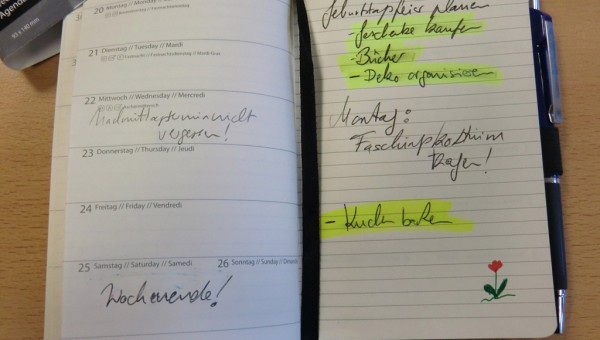 Agenda
20 Montag // Monday // Lundi
21 Dienstag // Tuesday // Mardi
22 Mittwoch // Wednesday // Mercredi
Nachmittagstermin nicht
vergessen!
23 Donnerstag // Thursday // Jeudi
24 Freitag // Friday // Vendredi
25 Samstag // Saturday // Samedi
26 Sonntag // Sunday // Dimanche
Wochenende!
Geburtstagsfeier planen
- Geschenke kaufen
- Bücher
- Deko organisieren
Montag:
Faschingskostüm
tragen!
- Kuchen backen